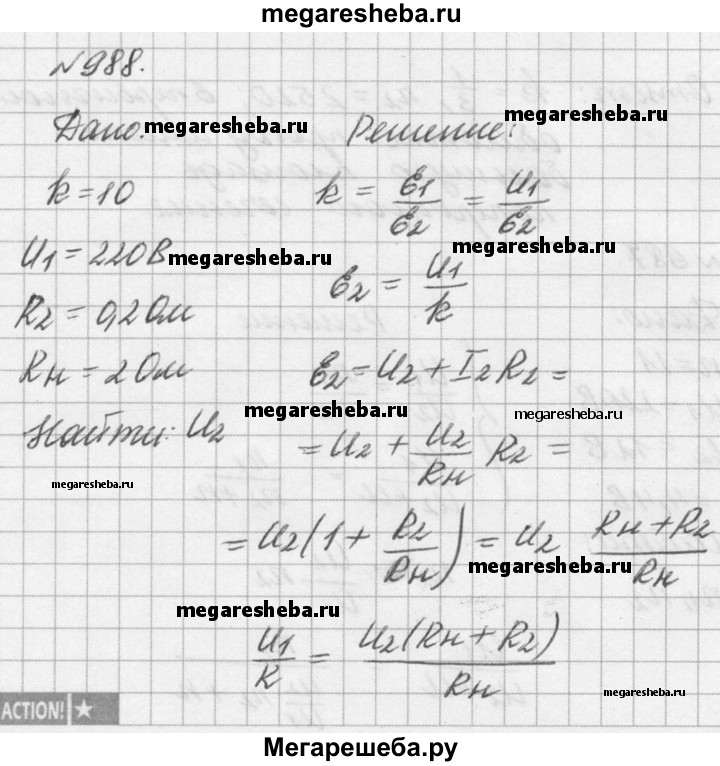 megaresheba.ru
№988.
Дано: megaresheba.ru Решение: megaresheba.ru
k = 10 k = ℰ1/ℰ2 = U1/ℰ2
U1 = 220В megaresheba.ru ℰ2 = U1/k megaresheba.ru
R2 = 0,2 Ом
Rн = 2 Ом ℰ2 = U2 + I2 R2 =
megaresheba.ru megaresheba.ru
Найти: U2 = U2 + U2/Rн R2 =
megaresheba.ru
= U2 (1 + R2/Rн) = U2 (Rн + R2)/Rн
megaresheba.ru
megaresheba.ru
U1/k = U2(Rн + R2)/Rн
megaresheba.ru
ACTION!
Мегарешеба.ру